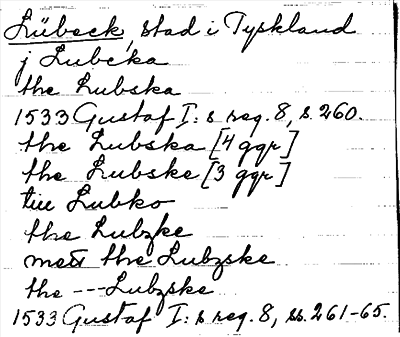 Lübeck, stad i Tyskland
j Lubeka
the Lubska
1533 Gustaf I:s reg. 8, s. 260.
the Lubska [4 ggr]
the Lubske [3 ggr]
till Lubko
the Lubzke
mett the Lubzske
the --- Lubzske
1533 Gustaf I:s reg. 8, ss. 261-65.